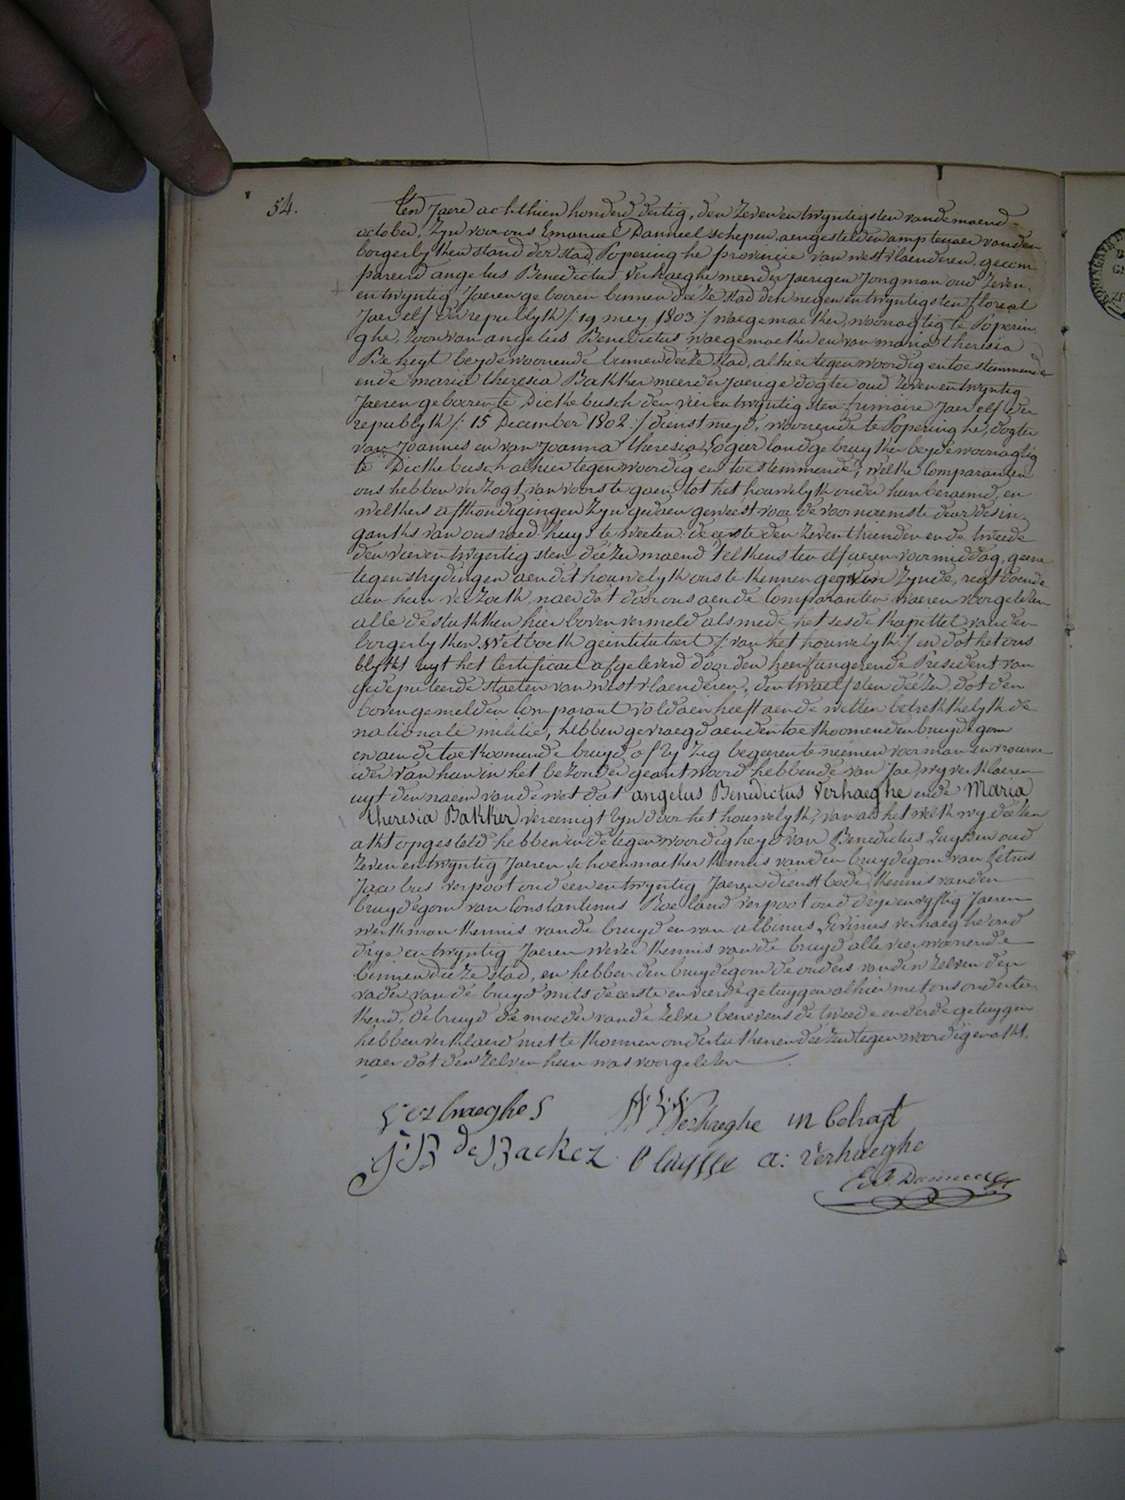 54.
Ten Jaere achthien honderd dertig, den zeven en twyntigsten van de maend
october, zyn voor ons Emanuel Danneel schepen, aengestelden amptenaer van den
borgerlyken stand der stad Poperinghe provincie van westvlaenderen, gecom
pareerd angelus Benedictus Verhaeghe meerderjaerigen Jongman oud zeven
en twyntig Jaeren geboren binnen deéze stad den negen en twyntigsten floreal
Jaer elf der republyk /: 19 mey 1803 :/ waegemaeker, woonagtig te Poperin
ghe, zoon van angelus Benedictus waegemaeker en van maria theresia
beyde woonende binnen deéze stad, alhier tegenwoordig en toestemmende
ende maria theresia Bakker meerderjaerige dogter oud zeven en twyntig
Jaeren geboren te Dickebusch den vier en twyntigsten frimaire Jaer elf der
republyk /: 15 December 1802 :/ dienstmeyd, woonende te Poperinghe, dogter
van Joannes en van Joanna theresia Logier landgebruyker beyde woonagtig
te Dickebusch alhier tegenwoordig en toestemmende, welke Comparanten
ons hebben verzogt, van voorts te gaen tot het houwelyk onder hun beraemd, en
welkers afkondigingen zyn gedaen geweest voor de voornaemste deur des in
ganks van ons raed huys te weeten: de eerste den zeventhienden en de tweede
den vier en twyntigsten deéze maend telkens ten elf ueren voormiddag, geene
tegenstrydingen aen dit houwelyk ons te kennen gegeven zynde, regt doende
aen hun verzoek, naer dat door ons aen de Comparanten waeren voorgelezen
alle de stukken hier boven vermeld als mede het sesde kapittel van den
borgerlyken Wetboek geintituleert /: van het houwelyk :/ en dat het ons
blykt uyt het Certificaet afgeleverd door den heer fungerende President van
gedeputeerde staeten van westvlaenderen, den twaelfsten deézer dat den
bovengemelden Comparant voldaen heeft aen de wetten betrekkelyk de
nationale militie, hebben gevraegd aen den toekoomenden bruydegom
en aen de toekoomende bruyd of zy zig begeeren te neemen voor man en vrouw
ider van hun in het bezonder geantwoord hebbende van Jae, wy verklaeren
uyt den naem van de wet dat angelus Benedictus Verhaeghe ende Maria
theresia Bakker vereenigt zyn door het houwelyk, van al het welk wy deézen
akt opgesteld hebben in de tegenwoordigheyd van Benedictus Luyssen oud
zeven en twyntig Jaeren schoenmaeker kennis van den bruydegom van Petrus
Jacobus verpoot oud een en twyntig Jaeren dienstbode kennis van den
bruydegom van Constantinus Roeland verpoot oud drye en vyftig Jaeren
werkman kennis van de bruyd en van albinus Livinus verhaeghe oud
drye en twyntig Jaeren wever kennis van de bruyd alle vier woonende
binnen deéze stad, en hebben den bruydegom de ouders van den zelven den
vader van de bruyd mits de eerste en vierde getuygen alhier met ons ondertee
kend, de bruyd de moeder van de zelve benevens de tweede en derde getuygen
hebben verklaerd niet te konnen onderteekenen deézen tegenwoordigen akt,
naer dat den zelven hun was voorgelezen
Verhaeghe in
J: B de Backer a: Verhaeghe